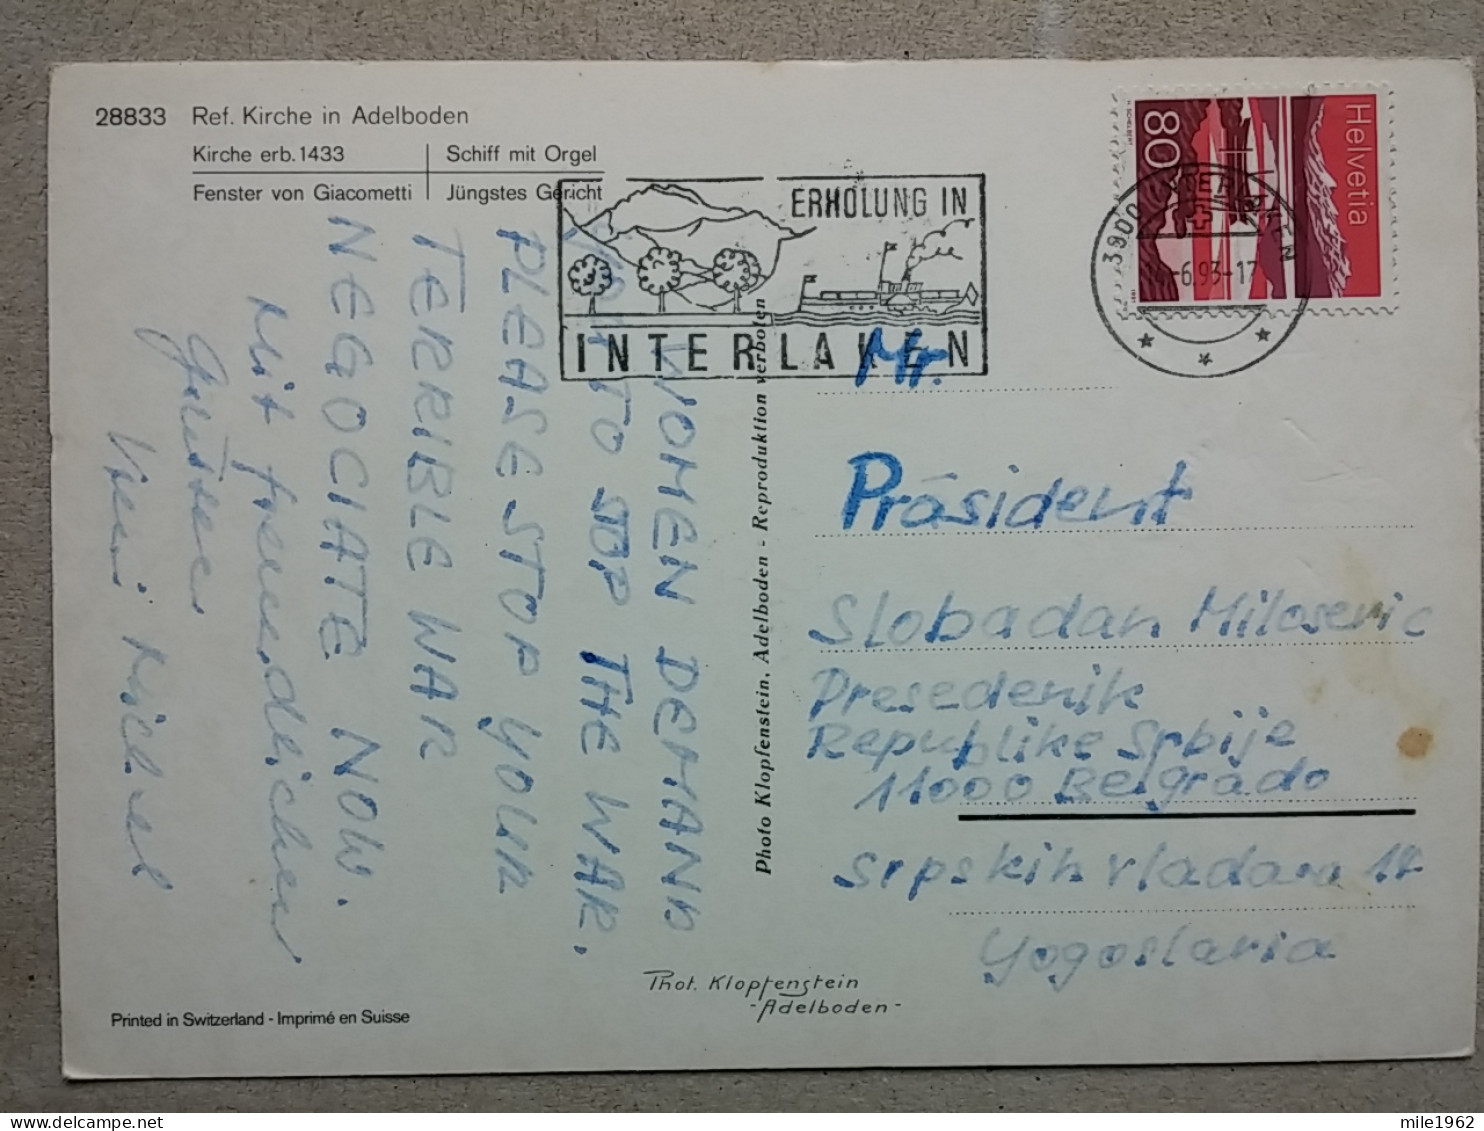 28833 Ref. Kirche in Adelboden
Kirche erb. 1433
Schiff mit Orgel
Fenster von Giacometti
Jüngstes Gericht
ERHOLUNG IN
INTERLAKEN
Helvetia
80
3800 INTERLAKEN
-6.93-17
WOMEN DEMAND
TO STOP THE WAR.
PLEASE STOP YOUR
TERRIBLE WAR
NEGOCIATE NOW.
Mit freundlichen
Grüssen
Photo Klopfenstein, Adelboden - Reproduktion verboten
Mr.
Präsident
Slobadan Milosevic
Presedenik
Republike Srbije
11000 Belgrado
Srpskih Vladara 14
Yogoslavia
Phot. Klopfenstein
-Adelboden-
Printed in Switzerland - Imprimé en Suisse
mile1962